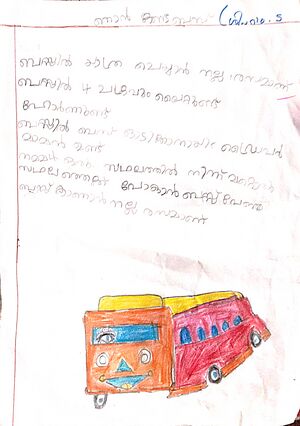 ഞാൻ കണ്ട ബസ്
ബസ്സിൽ യാത്ര ചെയ്യാൻ നല്ല രസമാണ്
ബസ്സിൽ 4 ചക്രവും ലൈറ്റുണ്ട്
ഹോർണുണ്ട്
ബസ്സിൽ ബസ് ഓടിക്കാനായി ഡ്രൈവർ
മാമൻ ഉണ്ട്
നമ്മൾ ഒരു സ്ഥലത്തിൽ നിന്ന് മറ്റൊരു
സ്ഥലത്തേക്ക് പോകാൻ ബസ്സ് വേണം
ബസ്സ് കാണാൻ നല്ല രസമാണ്